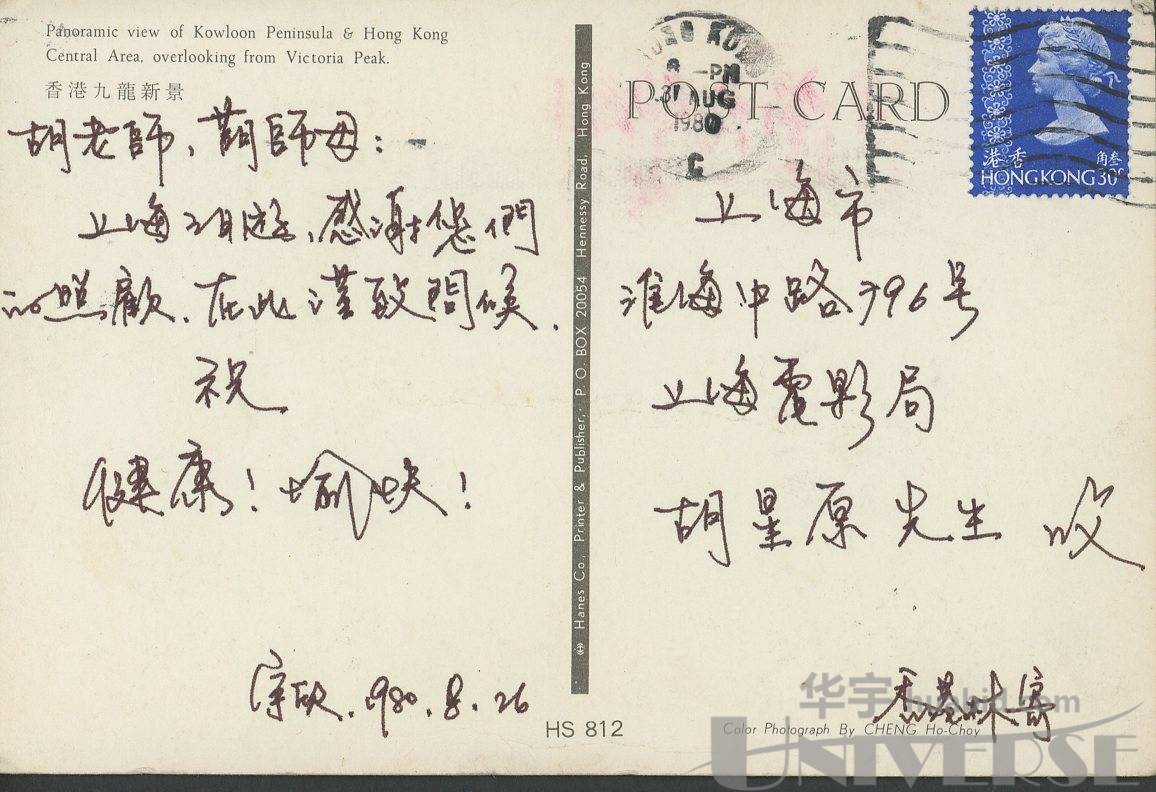 Panoramic view of Kowloon Peninsula & Hong Kong
Central Area, overlooking from Victoria Peak.
香港九龍新景
胡老師、師母:
上海之游,感謝您們
的照顧.在此謹致問候.
祝
健康!愉快!
1980.8.26
Hanes Co., Printer & Publisher, P. O. BOX 20054 Hennessy Road, Hong Kong
HS 812
POST-CARD
HONG KONG
PM
31 AUG
1980
C
港香
角叁
HONG KONG 30c
上海市
淮海中路796号
上海電影局
胡星原先生收
香港林寄
Color Photograph By CHENG Ho-Choy
华宇 huabid.com
UNIVERSE